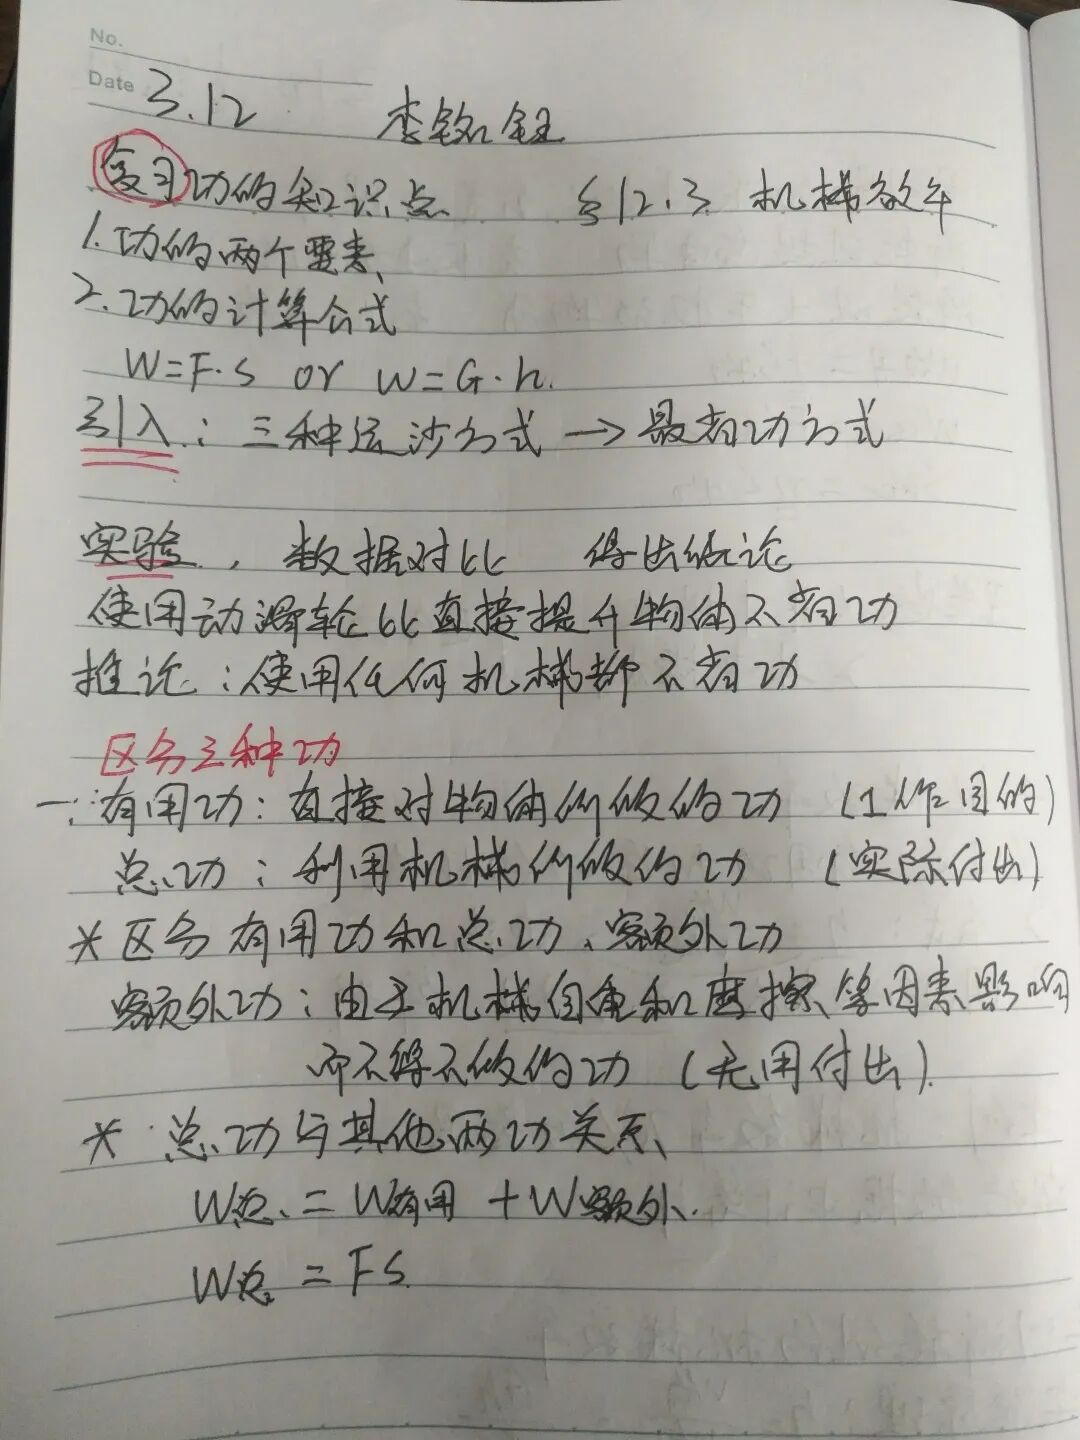 No.
Date 3.12 李铭钰
复习功的知识点 §12.3 机械效率
1.功的两个要素、
2.功的计算公式
W=F·S or W=G·h.
引入：三种运沙方式→最省功方式
实验，数据对比 得出结论
使用动滑轮比直接提升物体不省功
推论：使用任何机械都不省功
区分三种功
一：有用功：直接对物体所做的功（工作目的）
总功：利用机械所做的功（实际付出）
*区分有用功和总功、额外功
额外功：由于机械自重和摩擦等因素影响
而不得不做的功（无用付出）.
* 总功与其他两功关系、
W总=W有用+W额外.
W总=FS